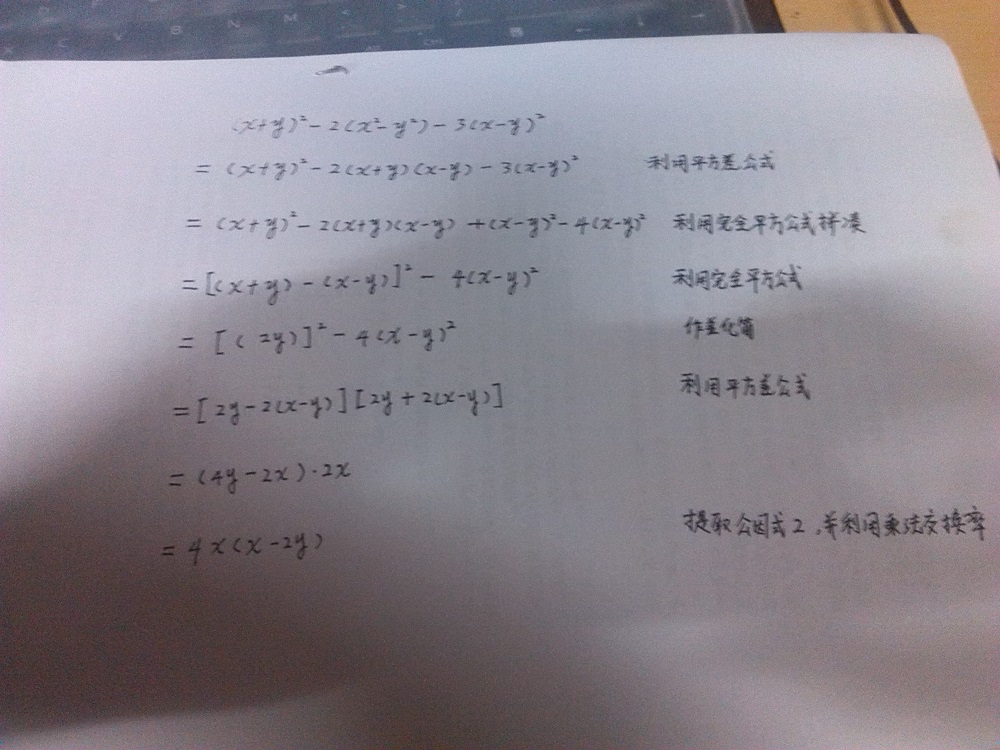 (x+y)²-2(x²-y²)-3(x-y)²
=(x+y)²-2(x+y)(x-y)-3(x-y)² 利用平方差公式
=(x+y)²-2(x+y)(x-y)+(x-y)²-4(x-y)² 利用完全平方公式拼凑
=[(x+y)-(x-y)]²-4(x-y)² 利用完全平方公式
=[(2y)]²-4(x-y)² 作差化简
=[2y-2(x-y)][2y+2(x-y)] 利用平方差公式
=(4y-2x)·2x
=4x(x-2y) 提取公因式2,并利用乘法交换率